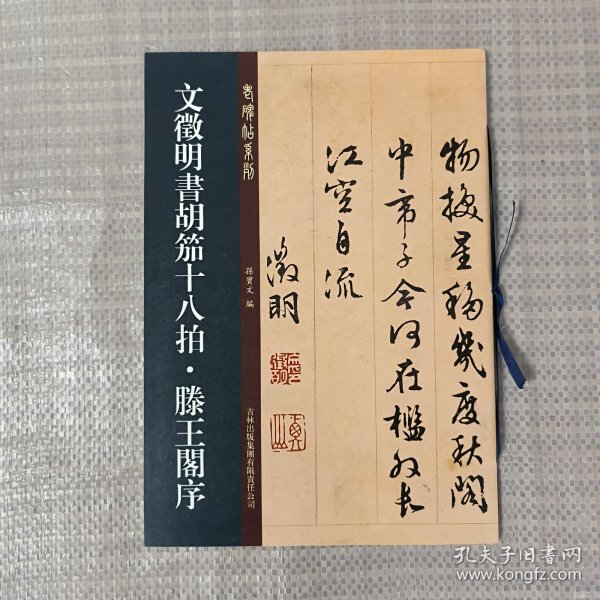 文徵明書胡笳十八拍·滕王閣序
老碑帖系列
孫寶文 編
吉林出版集團有限責任公司
物換星移幾度秋閣
中帝子今何在檻外長
江空自流
徵明
孔夫子旧书网
www.kongfz.com